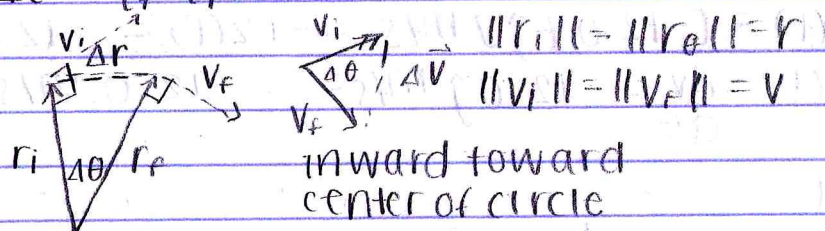 Vi
Δr
Vf
ri
Δθ
rf
Vi
Δθ
ΔV
Vf
||ri|| = ||rθ|| = r
||vi|| = ||Vf|| = V
inward toward
center of circle